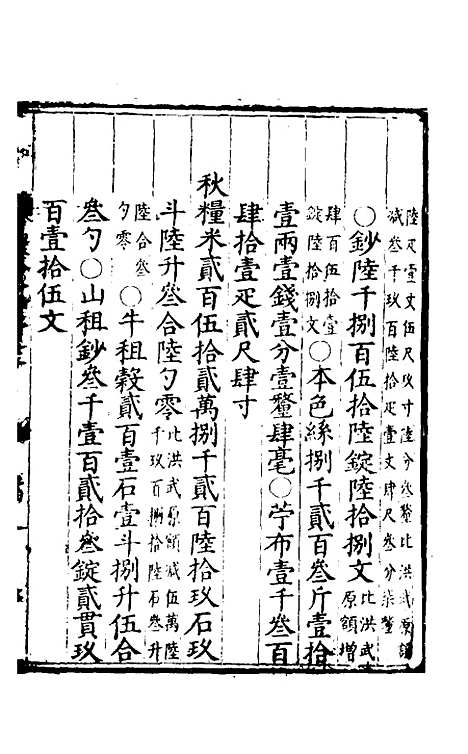 陸疋壹丈伍尺玖寸陸分叁釐比洪武原額
減叁千玖百陸拾疋壹丈肆尺叁分柒釐
○鈔陸千捌百伍拾陸錠陸拾捌文比洪武原額增
肆百伍拾壹錠陸拾捌文○本色絲捌千貳百叁斤壹拾
壹兩壹錢壹分壹釐肆毫○苧布壹千叁百
肆拾壹疋貳尺肆寸
秋糧米貳百伍拾貳萬捌千貳百陸拾玖石玖
斗陸升叁合陸勺零比洪武原額減伍萬陸千玖百捌拾陸石叁升
陸合叁勺零○牛租穀貳百壹石壹斗捌升伍合
叁勺○山租鈔叁千壹百貳拾叁錠貳貫玖
百壹拾伍文